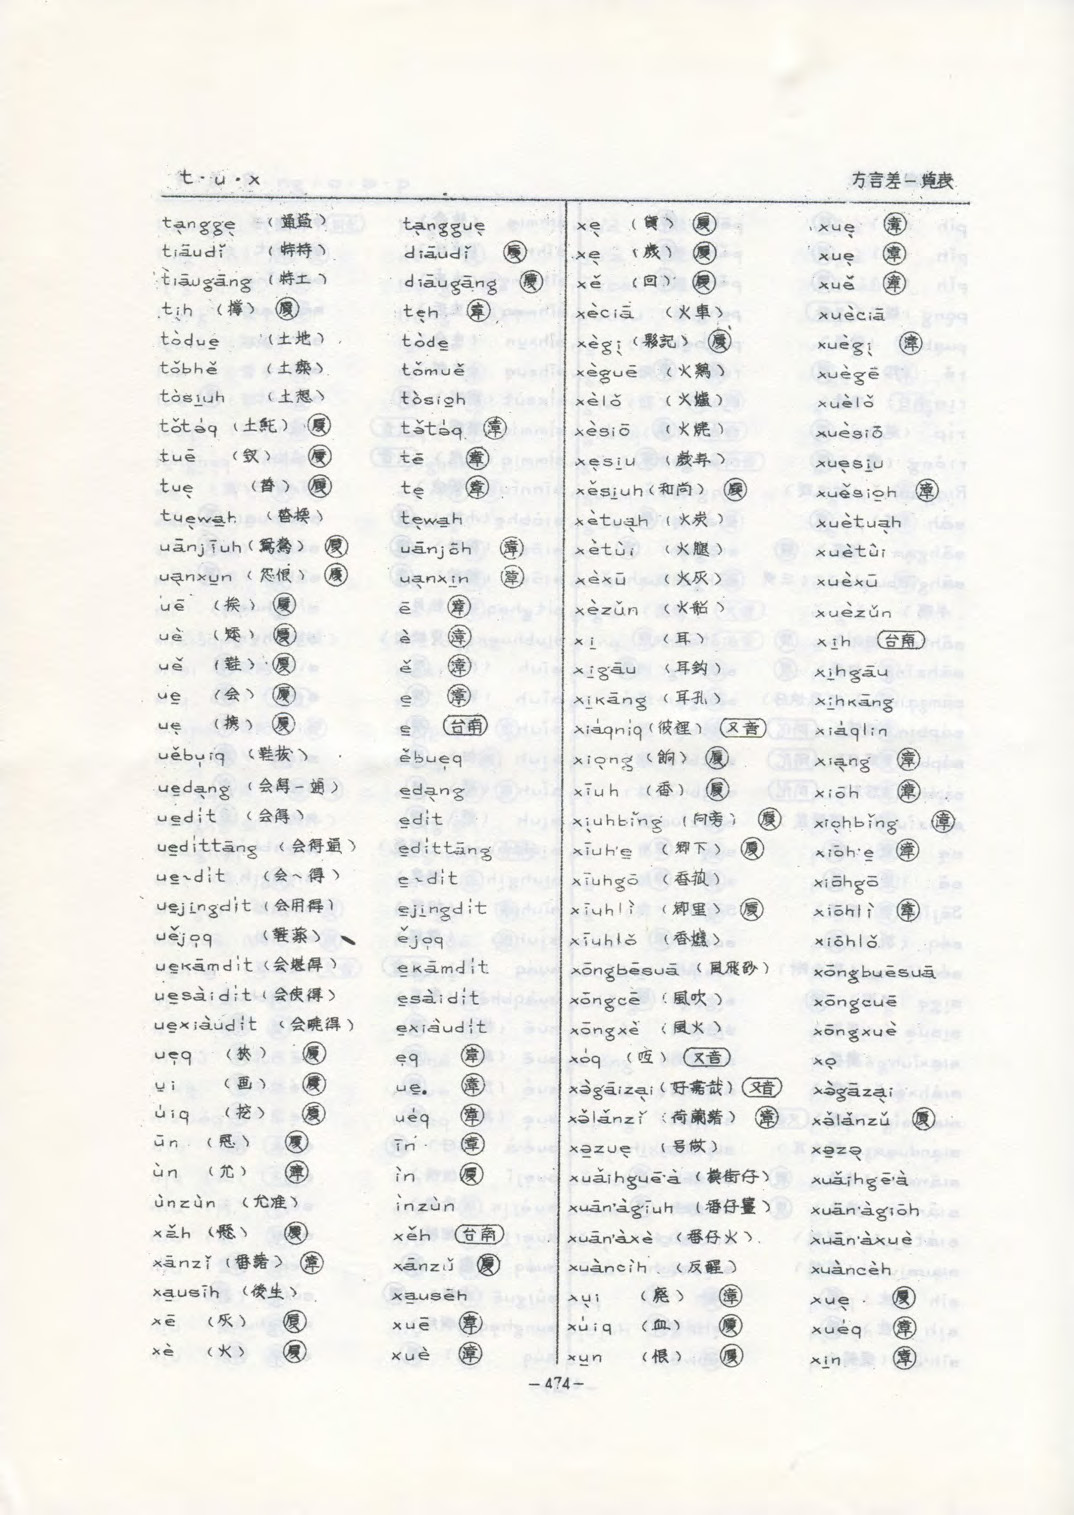 t・u・x 方言差一覽表
tạnggẹ (通過) tạngguẹ
tiāudǐ (特特) diāudǐ 厦
tiāugāng (特工) diāugāng 厦
tịh 厦 tẹh 漳
tòduẹ (土地) tòdẹ
tǒbhě (土糜) tǒmuě
tòsi̲uh (土想) tòsio̲h
tǒta̍q (土魠) 厦 tǒta̍q 漳
tuē (釵) 厦 tē 漳
tuẹ 厦 tẹ 漳
tuẹwa̲h (替換) tẹwa̲h
uānjīuh (鴛鴦) 厦 uānjōh 漳
ua̲nxu̲n (怨恨) 厦 ua̲nxi̲n 漳
uē (挨) 厦 ē 漳
uè (矮) 厦 è 漳
uě (鞋) 厦 ě 漳
ue̲ (会) 厦 e̲ 漳
uẹ 厦 e̲ 台南
uěbuịq (鞋拔) ěbuẹq
ue̲dạng (会得-通) e̲dạng
ue̲di̍t (会得) e̲di̍t
ue̲di̍ttāng (会得通) e̲di̍ttāng
ue̲~di̍t (会~得) e̲~di̍t
ue̲jingdi̍t (会用得) e̲jingdi̍t
uějọq ějọq
ue̲kāmdi̍t (会堪得) e̲kāmdi̍t
ue̲sàidi̍t (会使得) e̲sàidi̍t
ue̲xiàudi̍t (会曉得) e̲xiàudi̍t
uẹq (挾) 厦 ẹq 漳
u̲i (画) 厦 ue̲ 漳
u̍iq (挖) 厦 ue̍q 漳
ūn (恩) 厦 īn 漳
ùn (允) 漳 ìn 厦
ùnzùn (允准) ìnzùn
xǎh 厦 xěh 台南
xānzǐ (番藷) 漳 xānzǔ 厦
xa̲usīh (後生) xa̲usēh
xē (灰) 厦 xuē 漳
xè (火) 厦 xuè 漳
xẹ (貨) 厦 xuẹ 漳
xẹ (歲) 厦 xuẹ 漳
xě (回) 厦 xuě 漳
xèciā (火車) xuèciā
xègị (夥記) 厦 xuègị 漳
xèguē (火鷄) xuègē
xèlǒ (火爐) xuèlǒ
xèsiō (火燒) xuèsiō
xẹsi̲u xuẹsi̲u
xěsi̲uh (和尚) 厦 xuěsio̲h 漳
xètuạh (火炭) xuètuạh
xètùi (火腿) xuètùi
xèxū (火灰) xuèxū
xèzǔn (火船) xuèzǔn
xi̲ (耳) xi̲h 台南
xi̲gāu (耳鈎) xi̲hgāu
xi̲kāng (耳孔) xi̲hkāng
xia̍qni̍q 又音 xia̍qlin
xiọng (餉) 厦 xiạng 漳
xīuh (香) 厦 xiōh 漳
xịuhbǐng (向旁) 厦 xiọhbǐng 漳
xīuh'e̲ (鄉下) 厦 xiōh'e̲ 漳
xīuhgō (香菰) xiōhgō
xīuhlì (鄉里) 厦 xiōhlì 漳
xīuhlǒ (香爐) xiōhlǒ
xōngbēsuā (風飛砂) xōngbuēsuā
xōngcē (風吹) xōngcuē
xōngxè (風火) xōngxuè
xo̍q 又音 xọ
xàgāizại 又音 xàgāzại
xǎlǎnzǐ (荷蘭藷) 漳 xǎlǎnzǔ 厦
xa̲zuẹ (号做) xa̲zọ
xuǎihguē'à (橫街仔) xuǎihgē'à
xuān'àgīuh (番仔薑) xuān'àgiōh
xuān'àxè (番仔火) xuān'àxuè
xuàncíh (反醒) xuàncèh
xụi (廢) 漳 xuẹ 厦
xu̍iq (血) 厦 xue̍q 漳
xu̲n (恨) 厦 xi̲n 漳
-474-